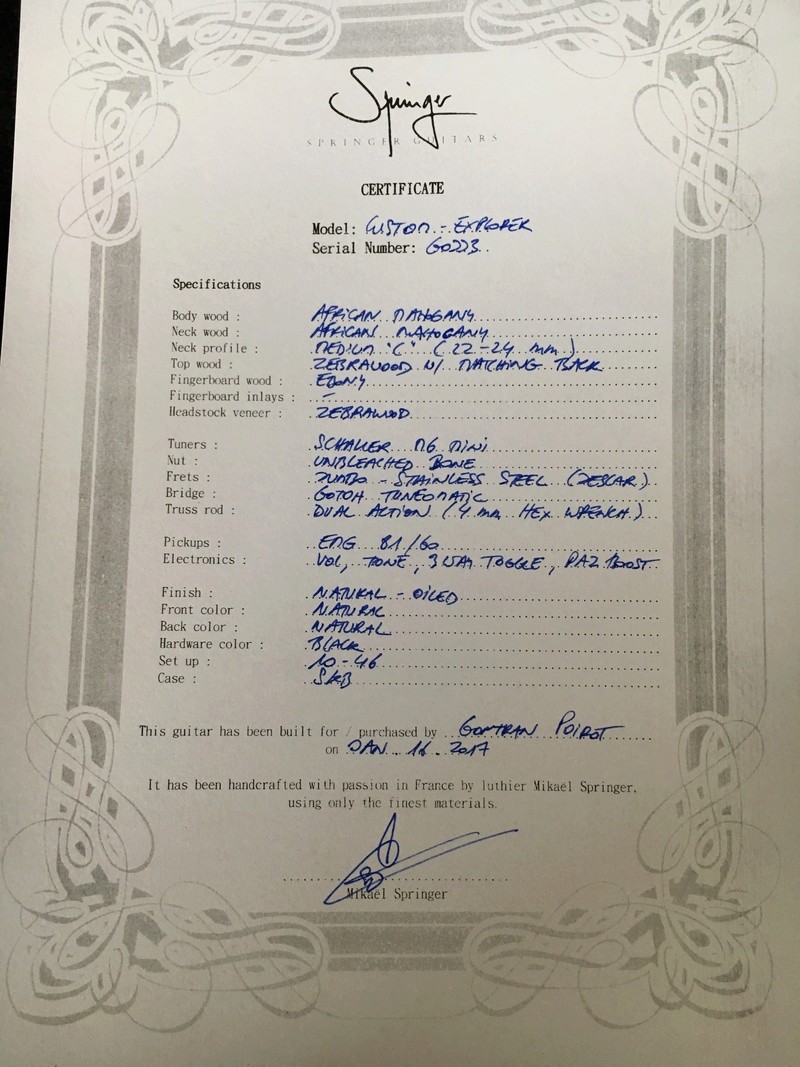 Springer
SPRINGER GUITARS
CERTIFICATE
Model: CUSTOM - EXPLORER
Serial Number: G0223
Specifications
Body wood : AFRICAN MAHOGANY
Neck wood : AFRICAN MAHOGANY
Neck profile : MEDIUM "C" (22-24 mm)
Top wood : ZEBRAWOOD W/ MATCHING BACK
Fingerboard wood : EBONY
Fingerboard inlays : -
Headstock veneer : ZEBRAWOOD
Tuners : SCHALLER M6 MINI
Nut : UNBLEACHED BONE
Frets : JUMBO - STAINLESS STEEL (JESCAR)
Bridge : GOTOH TUNEOMATIC
Truss rod : DUAL ACTION (4 mm HEX WRENCH)
Pickups : EMG 81/60
Electronics : VOL, TONE, 3 WAY TOGGLE, PA2 BOOST
Finish : NATURAL - OILED
Front color : NATURAL
Back color : NATURAL
Hardware color : BLACK
Set up : 10-46
Case : SKB
This guitar has been built for / purchased by GONTRAN POIROT
on JAN. 16. 2017
It has been handcrafted with passion in France by luthier Mikael Springer,
using only the finest materials.
Mikael Springer